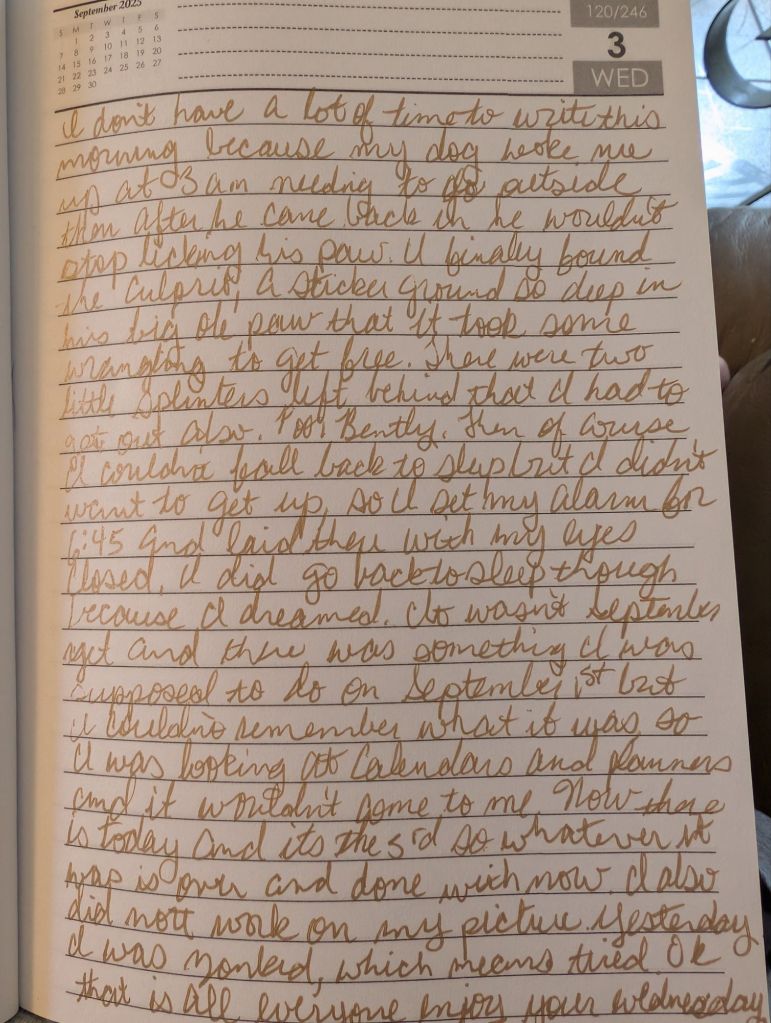 September 2025
S M T W T F S
1 2 3 4 5 6
7 8 9 10 11 12 13
14 15 16 17 18 19 20
21 22 23 24 25 26 27
28 29 30
120/246
3
WED
I don't have a lot of time to write this
morning because my dog woke me
up at 3 am needing to go outside
then after he came back in he wouldn't
stop licking his paw. I finally found
the culprit, a sticker ground so deep in
his big ole paw that it took some
wrangling to get free. There were two
little splinters left behind that I had to
get out also. Poor Bently. Then of course
I couldn't fall back to sleep but I didn't
want to get up, so I set my alarm for
6:45 and laid there with my eyes
closed, I did go back to sleep though
because I dreamed. It wasn't September
yet and there was something I was
supposed to do on September 1st but
I couldn't remember what it was, so
I was looking at calendars and planners
and it wouldn't come to me. Now there
is today and its the 3rd so whatever it
was is over and done with now. I also
did nott work on my picture yesterday
I was zonked, which means tired. Ok
that is all everyone enjoy your wednesday